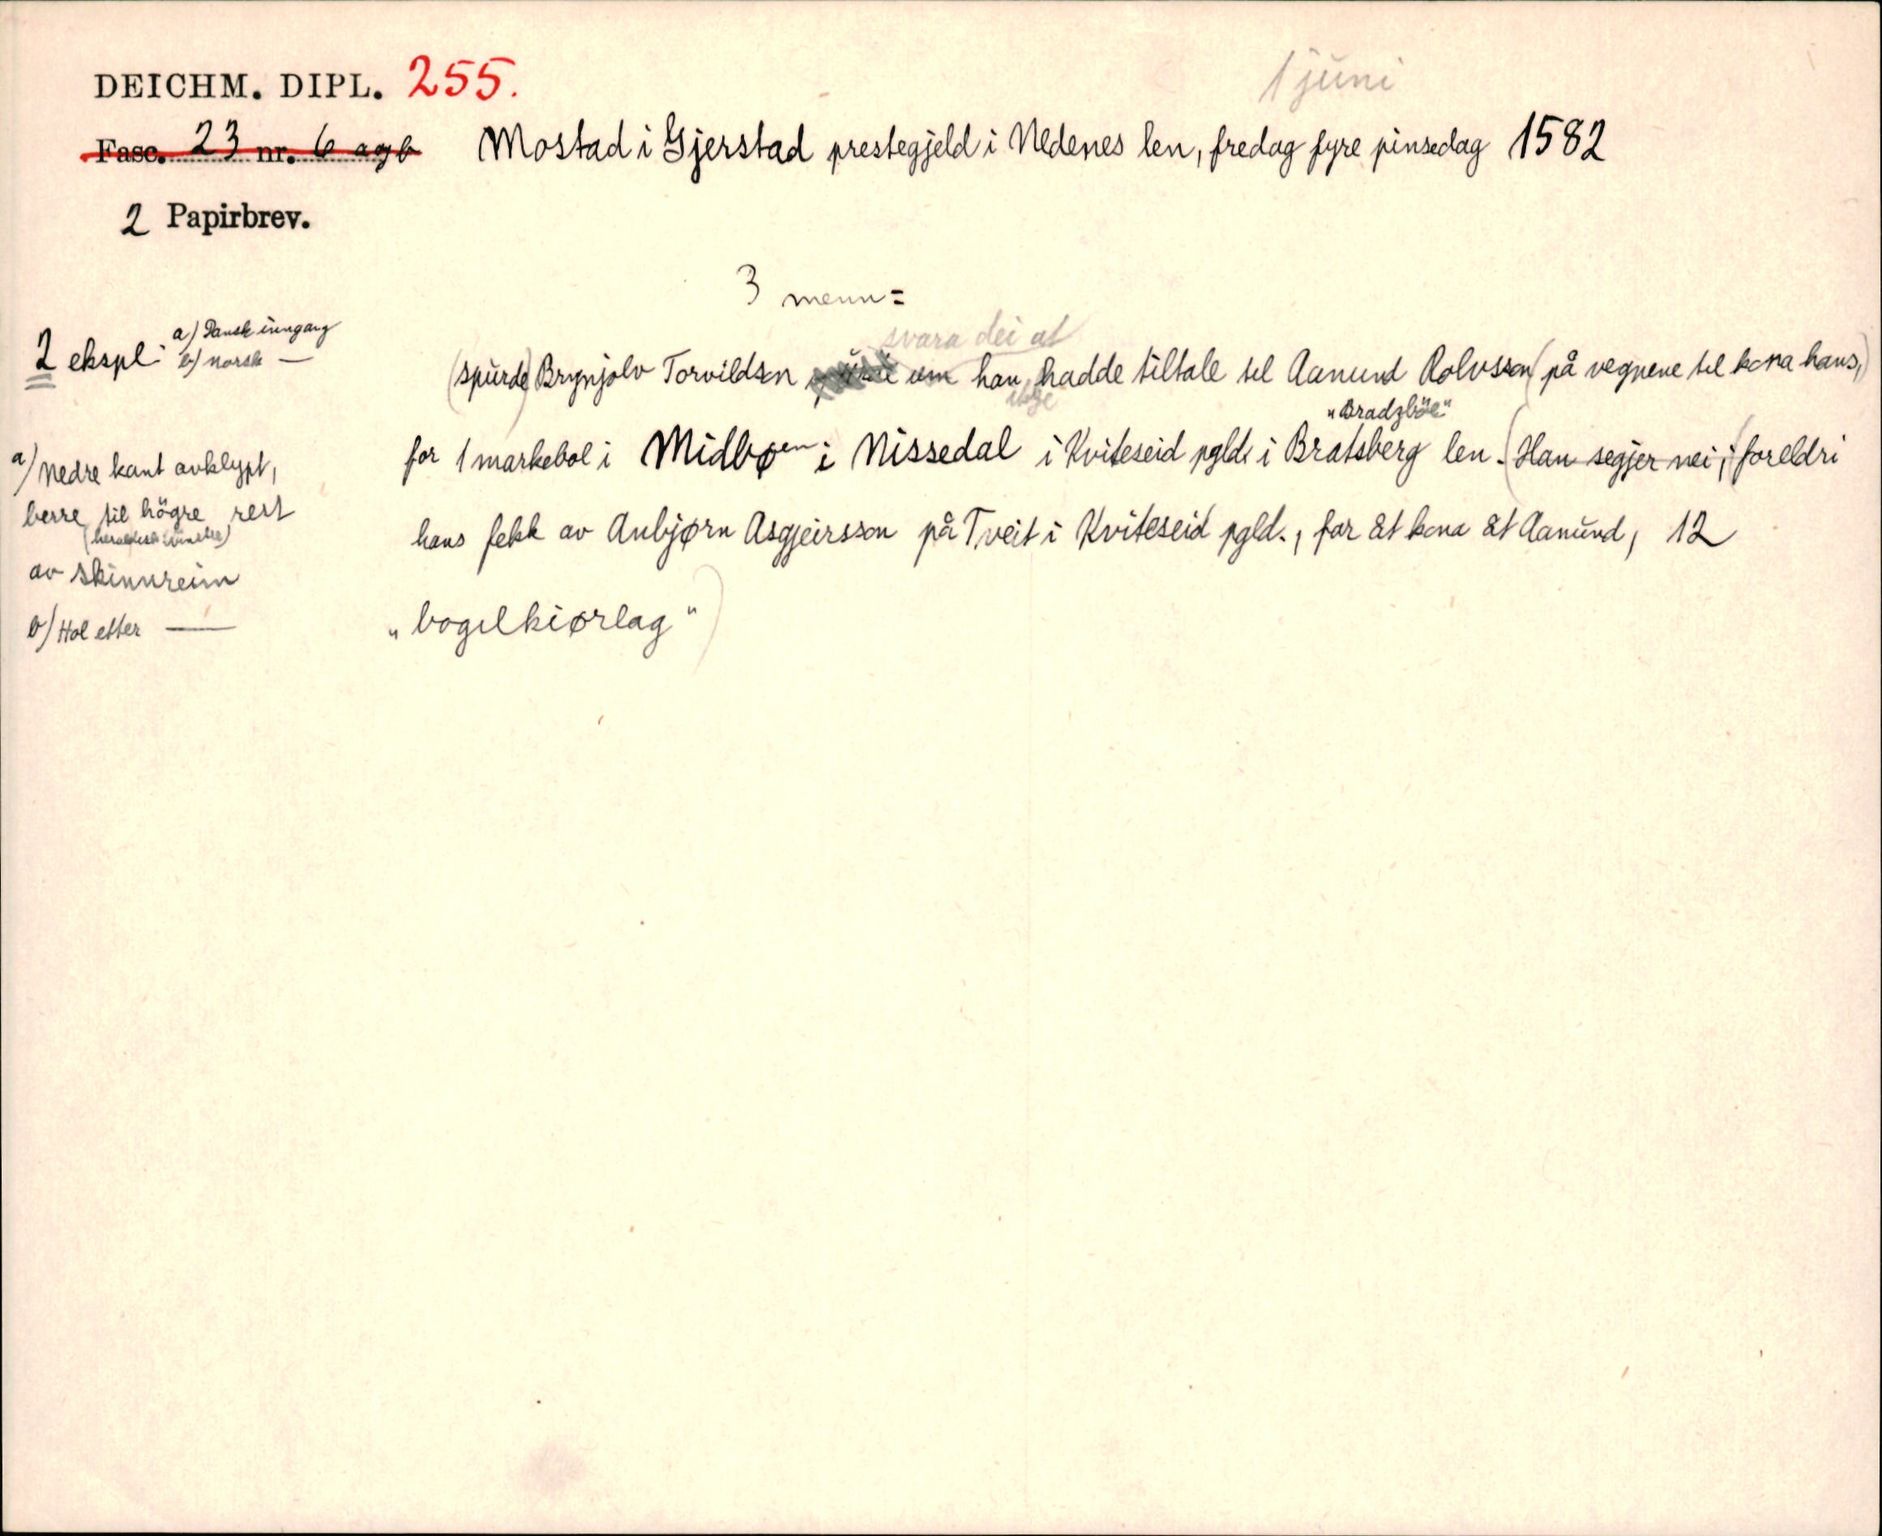 1 juni
DEICHM. DIPL. 255.
Fasc. 23 nr. 6 a og b Mostad i Gjerstad prestegjeld i Nedenes len, fredag fyre pinsedag 1582
2 Papirbrev.
3 menn =
a) Dansk inngang
2 ekspl. b) norsk —
svara dei at
(spurde) Brynjolv Torvildsen um han hadde tiltale til Aanund Rolvsson (på vegnene til kona hans,)
ikkje
"Bradzböe"
for 1 markebol i Midbøen i Nissedal i Kviteseid pgld. i Bratsberg len. (Han segjer nei, (foreldri
a) Nedre kant avklypt,
berre til högre rest
(heraldisk vinstre)
hans fekk av Anbjørn Asgjeirsson på Tveit i Kviteseid pgld., far åt kona åt Aanund, 12
av skinnreim
b) Hol etter —
"bogilkiørlag")